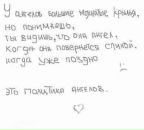 У ангелов большие мощные крылья,
но понимаешь,
ты видишь, что она ангел,
когда она повернется спиной.
когда уже поздно
это политика ангелов.